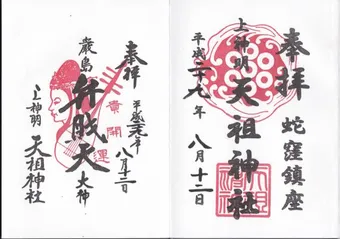 奉拝
蛇窪鎮座
上神明
天祖神社
平成二十九年
八月十二日
奉拝
平成二十九年
八月十二日
開運
厳島
弁財天
大神
上神明
天祖神社